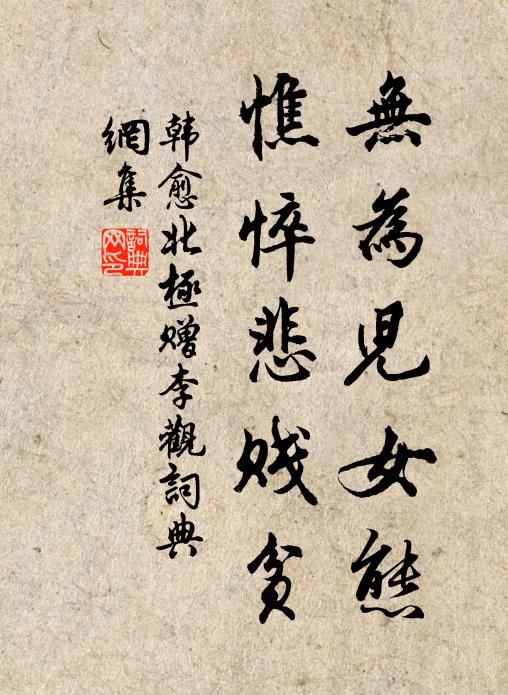 無為兒女態
憔悴悲贱貧
韩愈北極赠李觀詞典
網集
詞典
网印